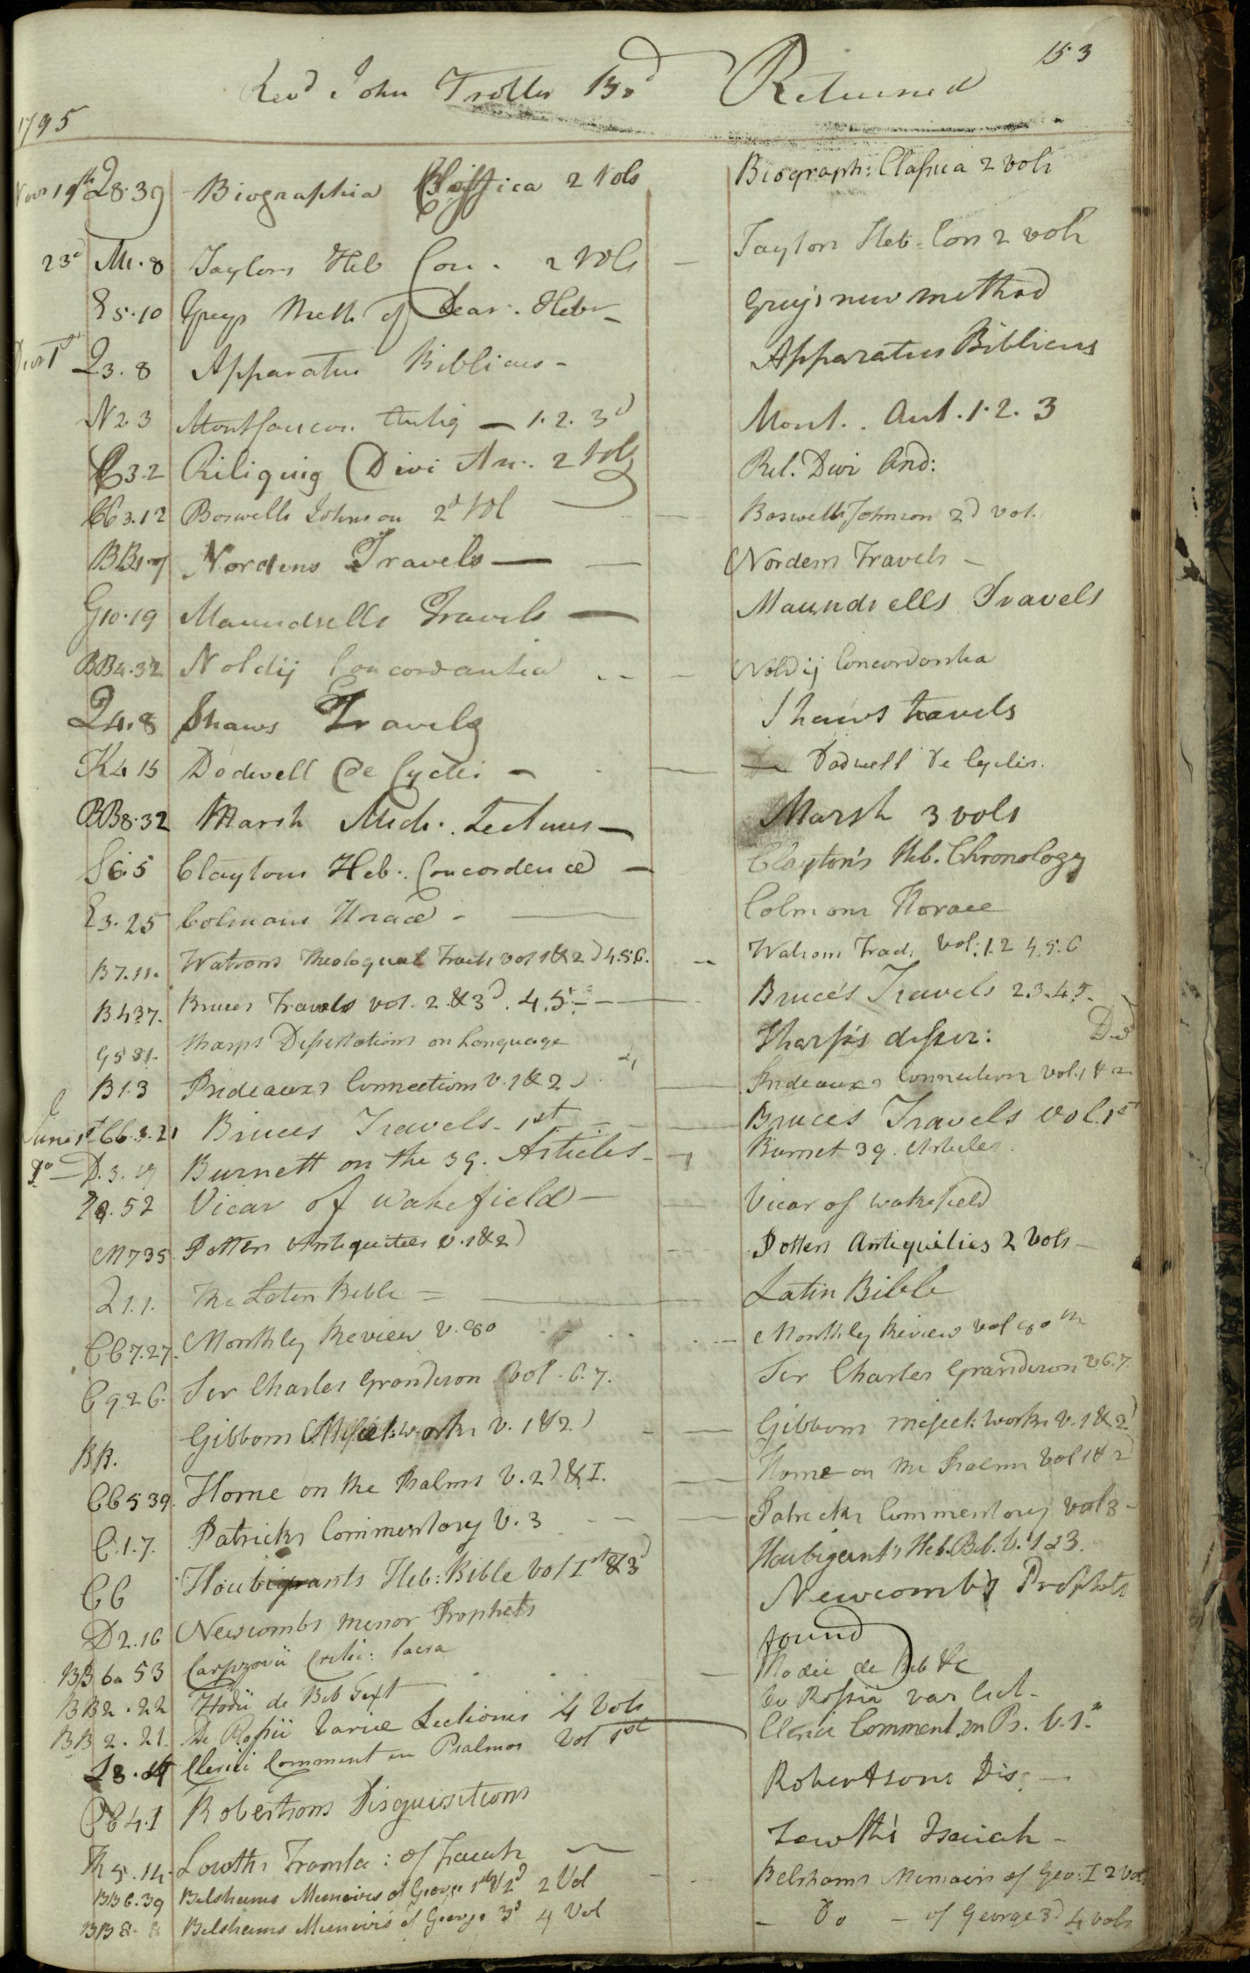 153
Revd John Trotter Bd Returned
1795
Novr 19th Q8.39 Biographia Classica 2 Vols Biograph: Classica 2 vols
23d M1.8 Taylors Heb Con. 2 Vols — Taylors Heb: Con 2 vols
E5.10 Greys Meth of Lear. Hebr — Grey's new method
Decr 1st Q3.8 Apparatus Biblicus — Apparatus Biblicus
N2.3 Montfaucon Antiq — 1.2.3d Mont. Ant. 1.2.3
3.2 Riliquiig Divi An. 2 Vols Rel. Divi And:
CC3.12 Boswells Johnson 2d Vol — Boswells Johnson 2d vol.
BB1.7 Nordens Travels — — Nordens Travels —
G10.19 Maundrells Travels — Maundrells Travels
BB4.32 Noldij Concordantia — Noldij Concordantia
Q4.8 Shaws Travels Shaws travels
K4.15 Dodwell De Cyclis — — Dodwell De Cyclis.
BB8.32 Marsh Mich. Lectures — Marsh 3 vols
S6.5 Claytons Heb. Concordence — Clayton's Heb. Chronology
E3.25 Colmans Horace — Colmans Horace
B7.11. Watsons Theological Tracts vol 1 & 2d 4.5.6. — Watsons Tracts Vol: 1.2 4.5.6
B4.37. Bruces Travels vol. 2 & 3d. 4.5 — — Bruce's Travels 2.3.4.5.
G5.31. Sharps Dissertations on Language Sharp's disser: Dd
B1.3 Prideauxs Connections v. 1 & 2d — Prideauxs Connection vol. 1 & 2
June 1st CC.3.21 Bruces Travels. 1st — Bruces Travels vol. 1st
Do — D.3.19 Burnett on the 39. Articles — Burnet 39. Articles.
9.52 Vicar of Wakefield — — Vicar of wakefield
M7.35 Potters Antiquities v. 1 & 2d — Potters Antiquities 2 Vols —
Q1.1. The Laten Bible — — Latin Bible
CC7.27. Monthly Review v. 80 — Monthly Review vol 80th
C9.26. Sir Charles Grandison Vol. 6.7. Sir Charles Grandison v 6.7.
BB. Gibbons Miscel. works v. 1 & 2d — Gibbons miscel: works v. 1 & 2d
CC5.39. Horne on the Psalms V. 2d & I. — Horne on the Psalms Vol 1 & 2d
C.1.7. Patricks Commentory V. 3 — Patricks Commentory vol 3 —
CC Houbigants Heb: Bible Vol Ist & 3d Houbigant's Heb. Bib. V. 1 & 3.
D2.16 Newcombs Minor Prophets Newcomb's Prophets
BB6a53 Carpzovii Critic: Sacra found
BB2.22 Hodii de Bib Text — Hodii de Bib &c
BB2.21. De Rossii Variæ Lectiones 4 Vols De Rossii var Lect —
Clerici Comment in Psalmos Vol 1st Clerici Comment. in Ps. V. 1st
CC4.1 Robertsons Disquisitions Robertsons Dis: —
K5.14. Lowths Transla: of Isaiah — Lowth's Isaiah —
BB6.39 Belshams Memoires of George 1st & 2d 2 Vol Belshams Memoirs of Geo: I 2 Vol
BB8.8 Belshams Memoirs of George 3d 4 Vol — Do — of George 3d 4 vols